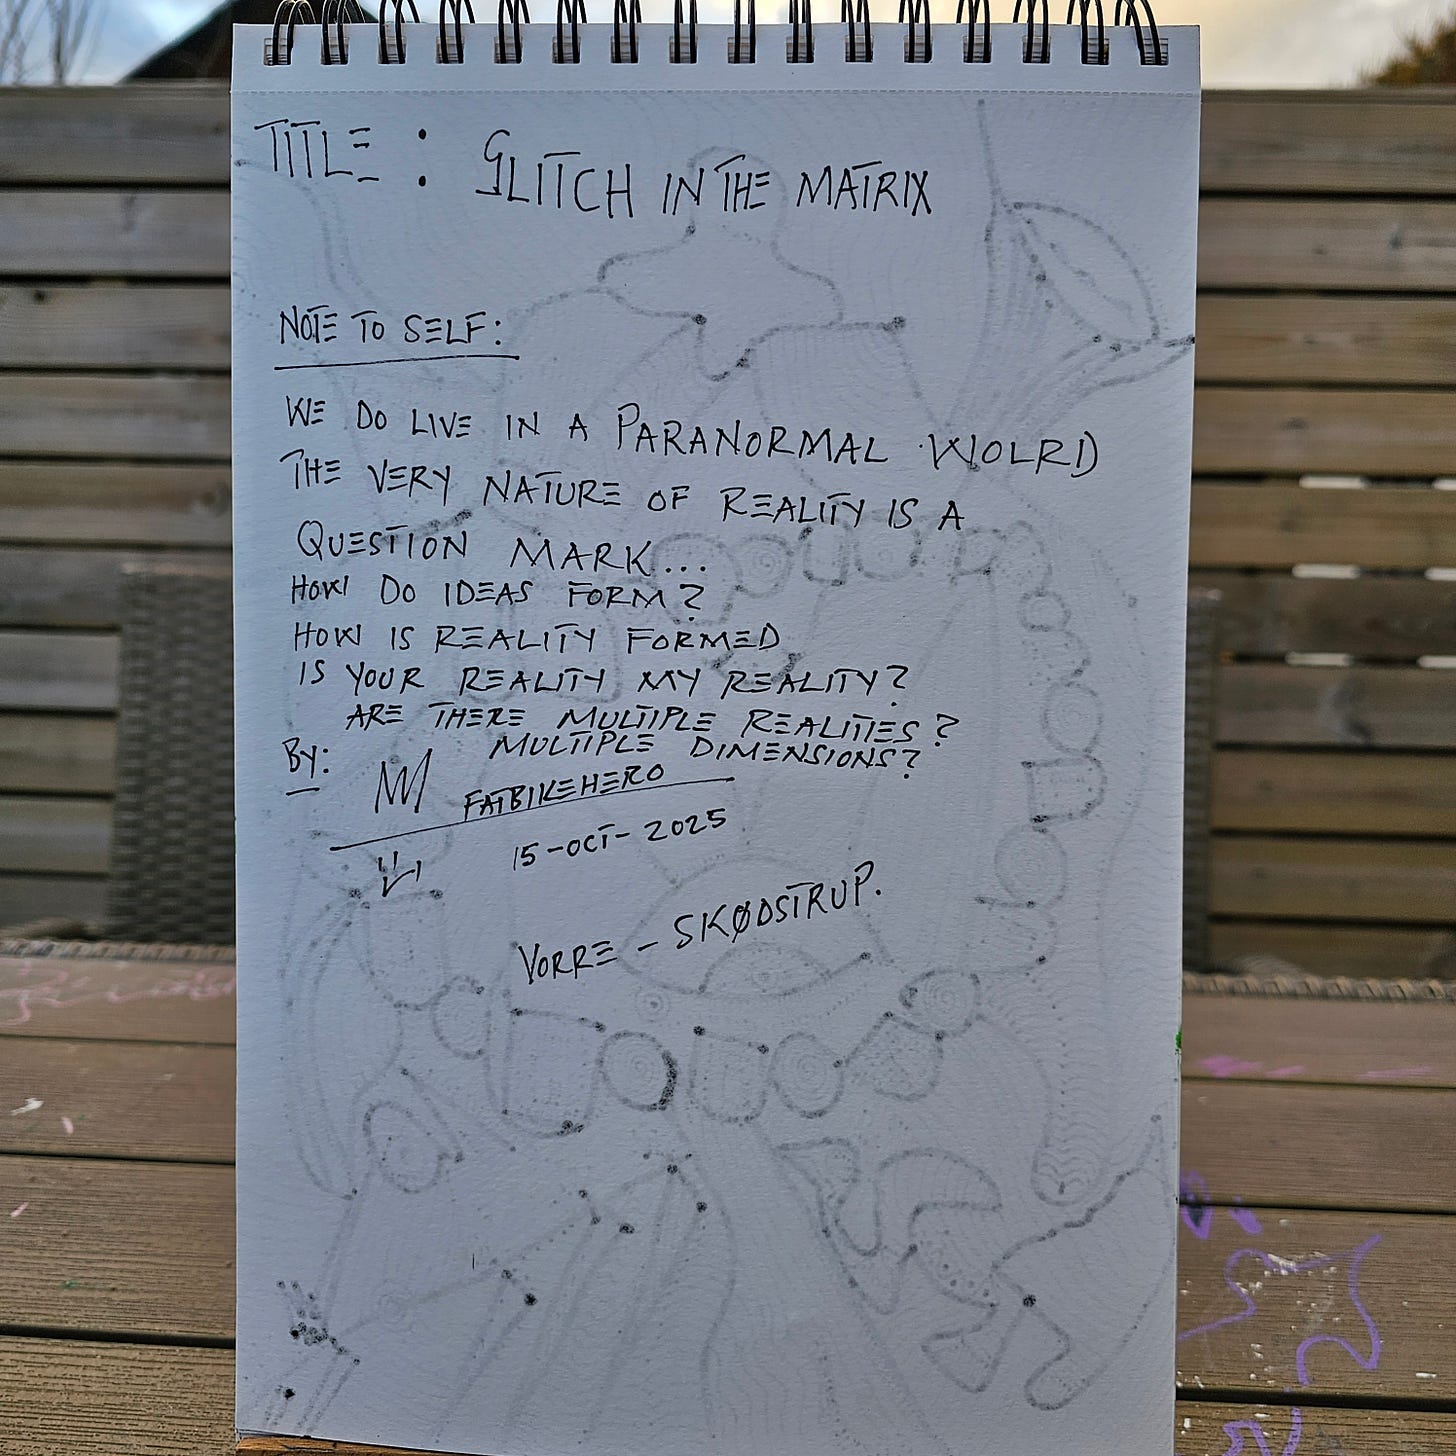 TITLE : GLITCH IN THE MATRIX
NOTE TO SELF:
WE DO LIVE IN A PARANORMAL WOLRD
THE VERY NATURE OF REALITY IS A
QUESTION MARK...
HOW DO IDEAS FORM?
HOW IS REALITY FORMED
IS YOUR REALITY MY REALITY?
ARE THERE MULTIPLE REALITIES?
MULTIPLE DIMENSIONS?
BY:
FATBIKEHERO
15-OCT-2025
VORRE - SKØDSTRUP.